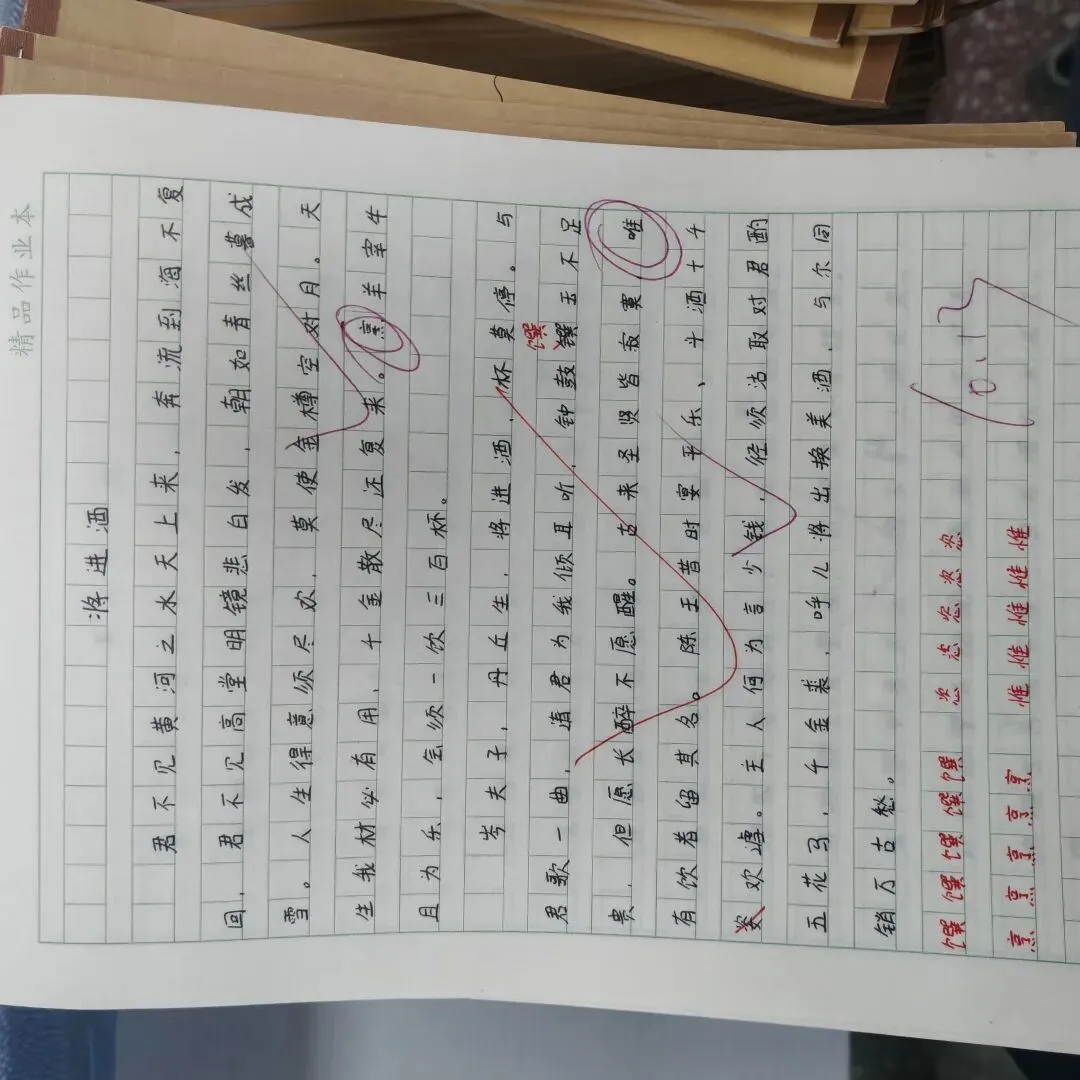 精品作业本
将进酒
君不见黄河之水天上来，奔流到海不复
回，君不见高堂明镜悲白发，朝如青丝暮成
雪。人生得意须尽欢，莫使金樽空对月。天
生我材必有用，千金散尽还复来。烹羊宰牛
且为乐，会须一饮三百杯。
岑夫子，丹丘生，将进酒，杯莫停。与
馔
君歌一曲，请君为我倾耳听，钟鼓馔玉不足
贵，但愿长醉不愿醒。古来圣贤皆寂寞唯
有饮者留其名。陈王昔时宴平乐、斗酒十千
姿欢谑。主人何为言少钱，径须沽取对君酌
五花马，千金裘，呼儿将出换美酒，与尔同
销万古愁。
馔馔馔馔馔 恣恣恣恣恣
烹烹烹烹烹 惟惟惟惟惟